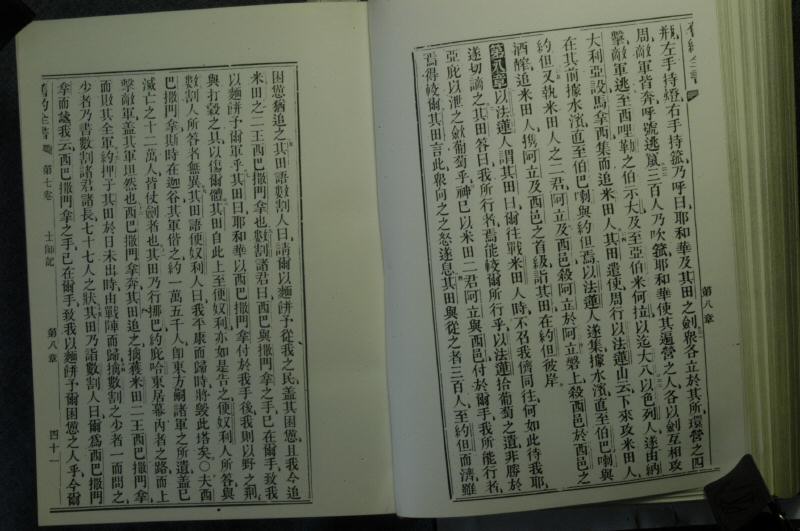 瓶左手持燈右手持箛乃呼曰耶和華及其田之劍衆各立於其所環營之四
周敵軍皆奔呼號逃竄三百人乃吹箛耶和華使其遍營之人各以劍互相攻
擊敵軍逃至西哩勒之伯示大及至亞伯米何拉以迄大八以色列人遂由納
大利亞設馬拿西集而追米田人其田遣使周行以法蓮山云下來攻米田人
在其前據水濱直至伯巴喇與約但焉以法蓮人遂集據水濱直至伯巴喇與
約但又執米田人之二君阿立及西邑殺阿立於阿立磐上殺西邑於西邑之
酒醡追米田人携阿立及西邑之首級詣其田在約但彼岸
第八章以法蓮人謂其田曰爾往戰米田人時不召我儕同往何如此待我耶
遂切謫之其田答曰我所行者焉能較爾所行乎以法蓮拾葡萄之遺非勝於
亞庇以泄之歛葡萄乎神已以米田二君阿立與西邑付於爾手我所能行者
焉得較爾其田言此衆向之之怒遂息其田與從之者三百人至約但而濟雖
第八章
困憊猶追之其田語數割人曰請爾以麵餅予從我之民蓋其困憊且我今追
米田之二王西巴撒門拿也數割諸君曰西巴與撒門拿之手已在爾手致我
以麵餅予爾軍乎其田曰耶和華以西巴撒門拿付於我手後我則以野之荆
與打穀之具以傷爾體其田自此上至便奴利亦如是告之便奴利人所答與
數割人所答者無異其田語便奴利人曰我平康而歸時將毀此塔矣〇夫西
巴撒門拿其時在迦谷其軍偕之約一萬五千人卽東方嗣諸軍之所遺蓋已
滅亡之十二萬人皆仗劍者也其田乃行挪巴約庇哈東居幕內者之路而上
擊敵軍蓋其軍坦然也西巴撒門拿奔其田追之擒獲米田二王西巴撒門拿
而敗其全軍約押子其田於日未出時由戰陣而歸擒數割之少者一而問之
少者乃書數割諸君諸長七十七人之狀其田乃詣數割人曰爾爲西巴撒門
拿而譏我云西巴撒門拿之手已在爾手致我以麵餅予爾困憊之人乎今爾
第七卷 士師記 第八章 四十一